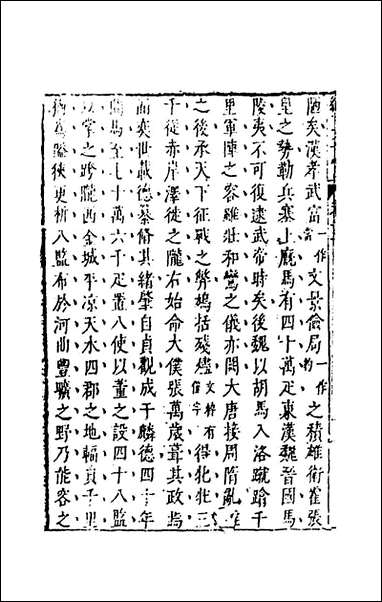 陋矣漢孝武富一作當文景儉局一作約之積雄衛霍張
皇之勢勒兵塞上廐馬有四十萬疋東漢魏晉國馬
陵夷不可復逮武帝時矣後魏以胡馬入洛蹴蹋千
里軍陣之容雖壯和鸞之儀亦闕大唐接周隋亂離
之後承天下征戰之弊鳩括殘燼文粹有僅字得牝牡三
千從赤岸澤徙之隴右始命太僕張萬歲葺其政焉
而奕世載德纂脩其緒肇自貞觀成于麟德四十年
間馬至七十萬六千疋置八使以董之設四十八監
以掌之跨隴西金城平涼天水四郡之地幅員千里
猶為隘狹更析八監布於河曲豐曠之野乃能容之